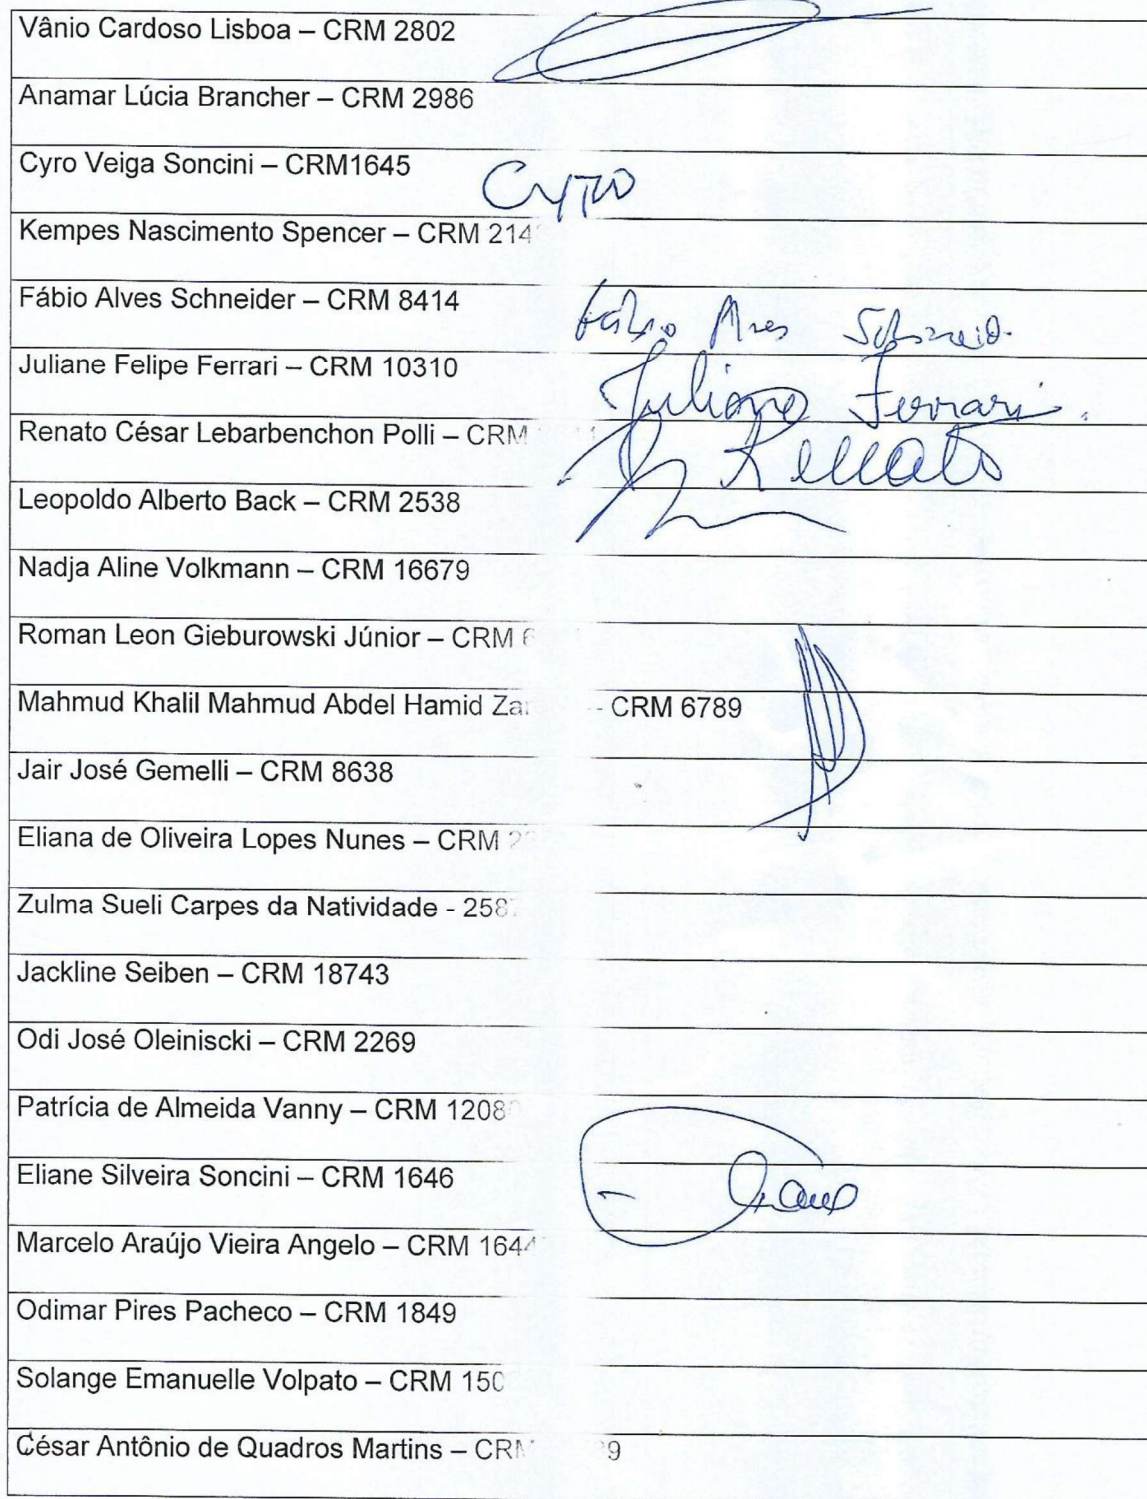 Vânio Cardoso Lisboa – CRM 2802
Anamar Lúcia Brancher – CRM 2986
Cyro Veiga Soncini – CRM1645
Cyro
Kempes Nascimento Spencer – CRM
Fábio Alves Schneider – CRM 8414
Fábio
Juliane Felipe Ferrari – CRM 10310
Juliane Ferrari
Renato César Lebarbenchon Polli – CRM
Renato
Leopoldo Alberto Back – CRM 2538
Nadja Aline Volkmann – CRM 16679
Roman Leon Gieburowski Júnior – CRM
Mahmud Khalil Mahmud Abdel Hamid – CRM 6789
Jair José Gemelli – CRM 8638
Eliana de Oliveira Lopes Nunes – CRM
Zulma Sueli Carpes da Natividade -
Jackline Seiben – CRM 18743
Odi José Oleiniscki – CRM 2269
Patrícia de Almeida Vanny – CRM
Eliane Silveira Soncini – CRM 1646
Marcelo Araújo Vieira Angelo – CRM
Odimar Pires Pacheco – CRM 1849
Solange Emanuelle Volpato – CRM
César Antônio de Quadros Martins –